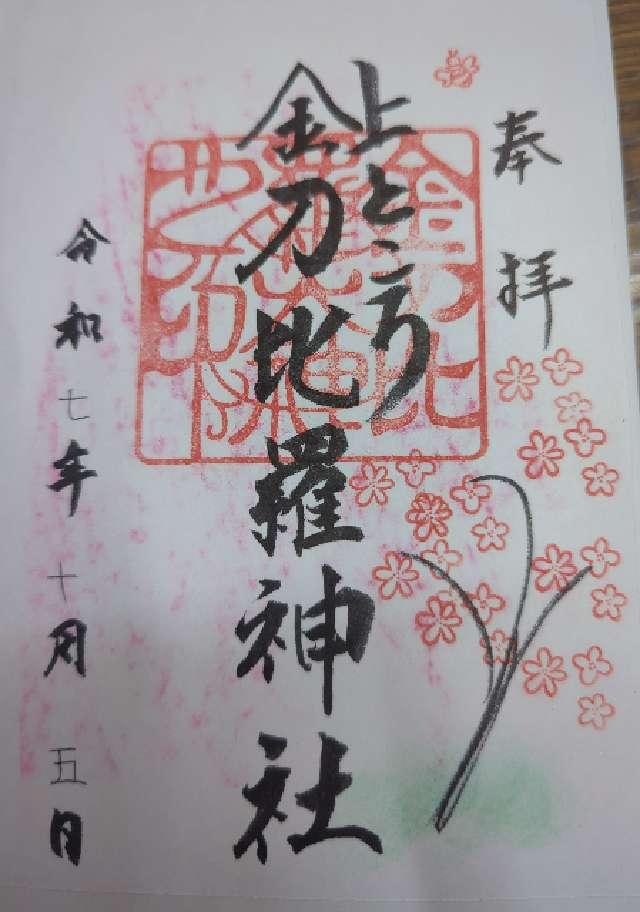 奉拝
上ところ
金刀比羅神社
令和七年十月五日